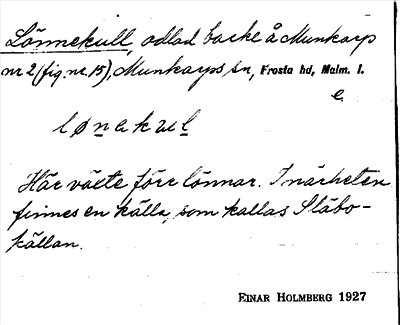 Lönnekull, odlad backe å Munkarp
nr 2 (fig. nr. 15), Munkarps sn, Frosta hd, Malm. l.
e.
lønekul
Här växte förr lönnar. I närheten
finnes en källa, som kallas Slåbo-
källan.
EINAR HOLMBERG 1927